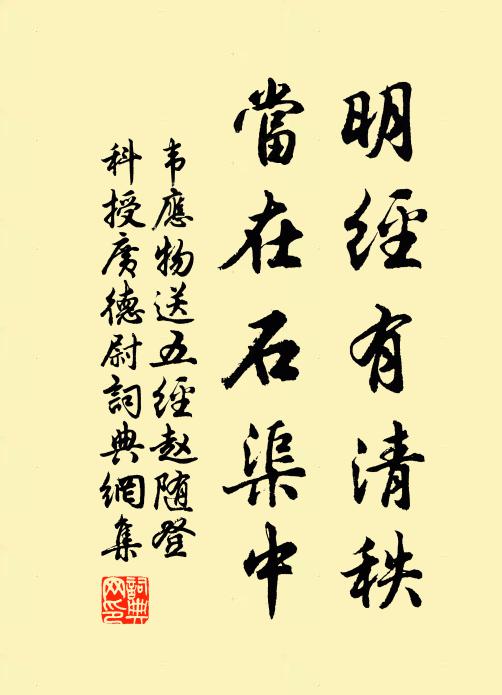 明經有清秩
當在石渠中
韦應物送五經赵随登
科授廣德尉詞典網集
詞典網印